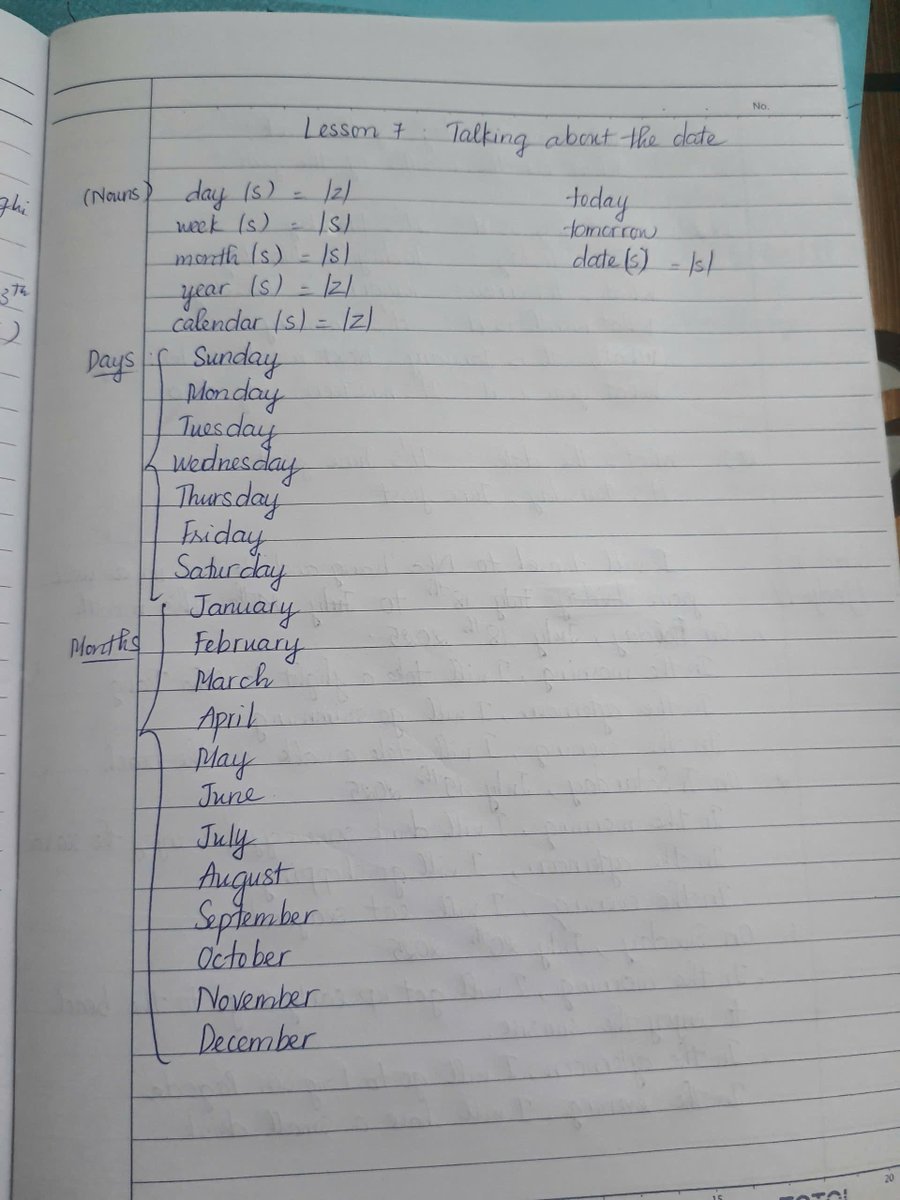 No.
Lesson 7 : Talking about the date
(Nouns) day (s) = /z/ today
week (s) = /s/ tomorrow
month (s) = /s/ date (s) = /s/
year (s) = /z/
calendar (s) = /z/
Days : Sunday
Monday
Tuesday
Wednesday
Thursday
Friday
Saturday
January
Months February
March
April
May
June
July
August
September
October
November
December
ghi
3Th
15
20